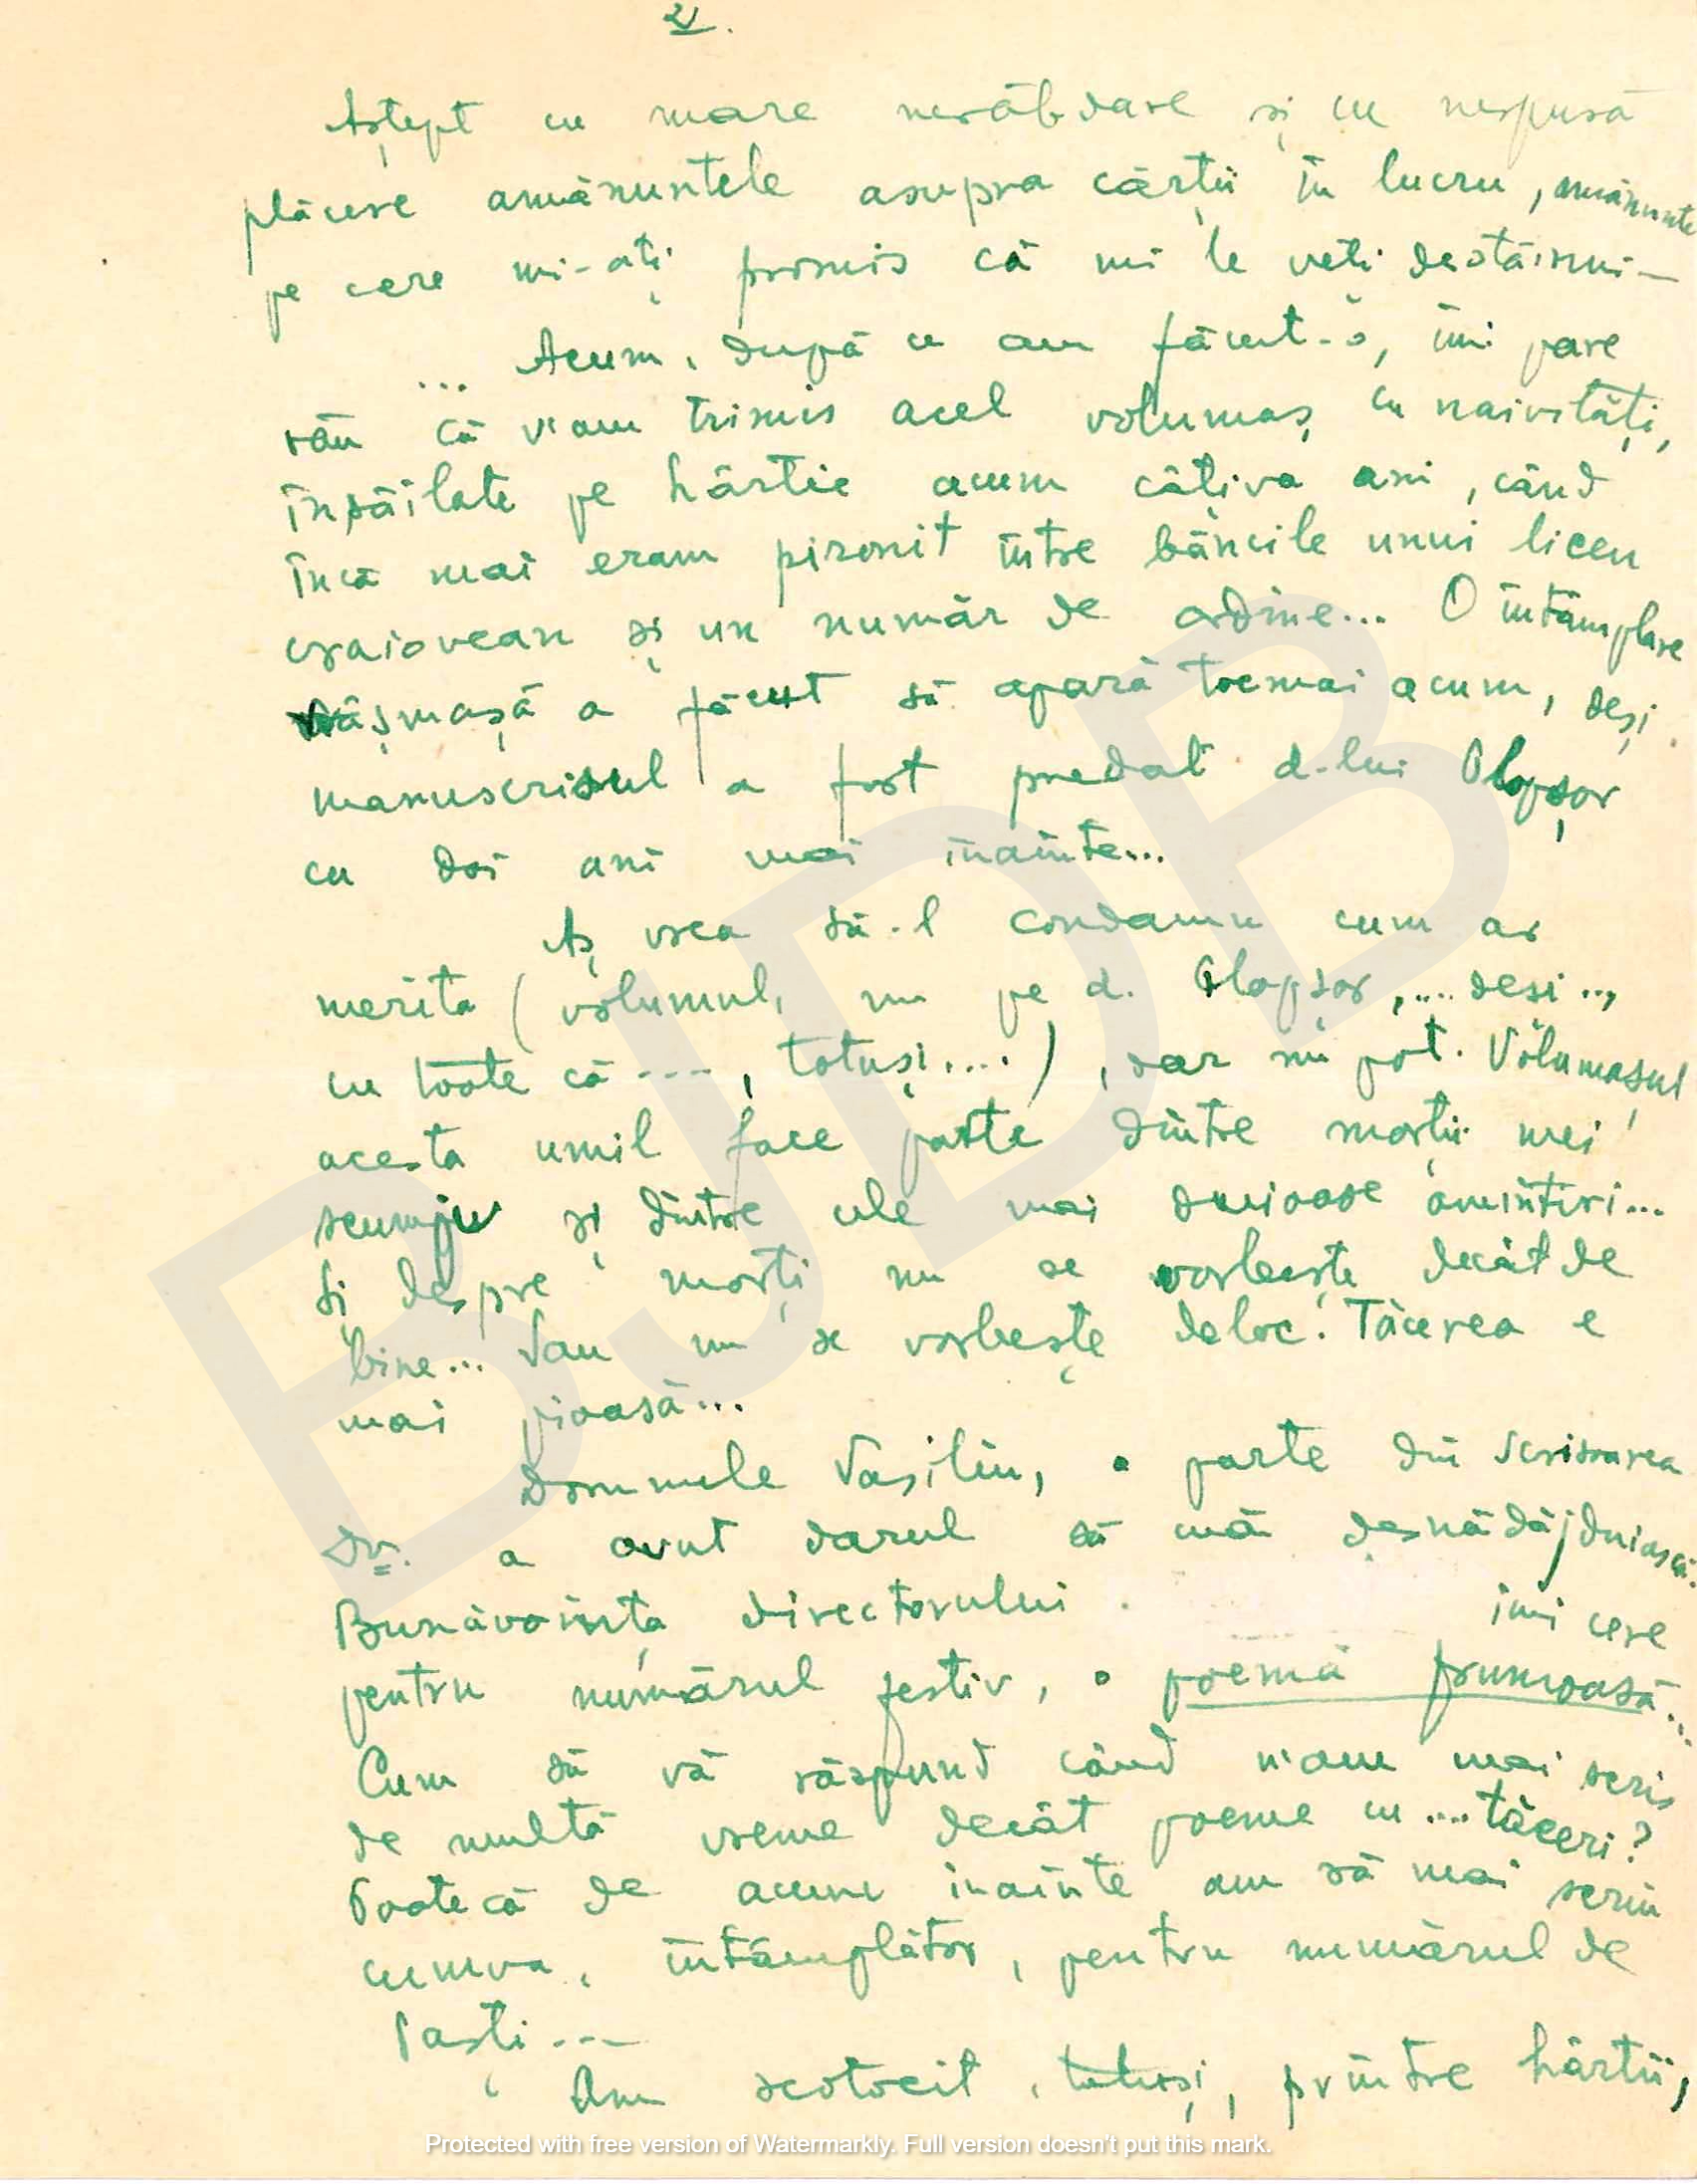 2.
Aștept cu mare nerăbdare și cu nespusă
plăcere amănuntele asupra cărții în lucru, amănunte
pe care mi-ați promis că mi le veți destăinui-
... Acum, după ce am făcut-o, îmi pare
rău că v'am trimis acel volumaș cu naivități,
însăilate pe hârtie acum câțiva ani, când
încă mai eram pironit între băncile unui liceu
craiovean și un număr de ordine... O întâmplare
vrăjmașă a făcut să apară tocmai acum, deși
manuscrisul a fost predat d-lui Plopșor
cu doi ani mai înainte...
Aș vrea să-l condamn cum ar
merita (volumul, nu pe d. Plopșor,... deși..,
cu toate că ---, totuși....), dar nu pot. Volumașul
acesta umil face parte dintre morții mei
scumpi și dintre cele mai duioase amintiri...
Și despre morți nu se vorbește decât de
bine... Sau nu se vorbește deloc. Tăcerea e
mai pioasă...
Domnule Vasiliu, o parte din scrisoarea
Dv. a avut darul să mă desnădăjduiască.
Bunăvoința directorului îmi cere
pentru numărul festiv, o poemă frumoasă...
Cum să vă răspund când n'am mai scris
de multă vreme decât poeme cu .... tăceri?
Poate că de acum înainte am să mai scriu
cumva, întâmplător, pentru numărul de
Paști ---
Am scotocit, totuși, printre hârtii,
Protected with free version of Watermarkly. Full version doesn't put this mark.
BJDB